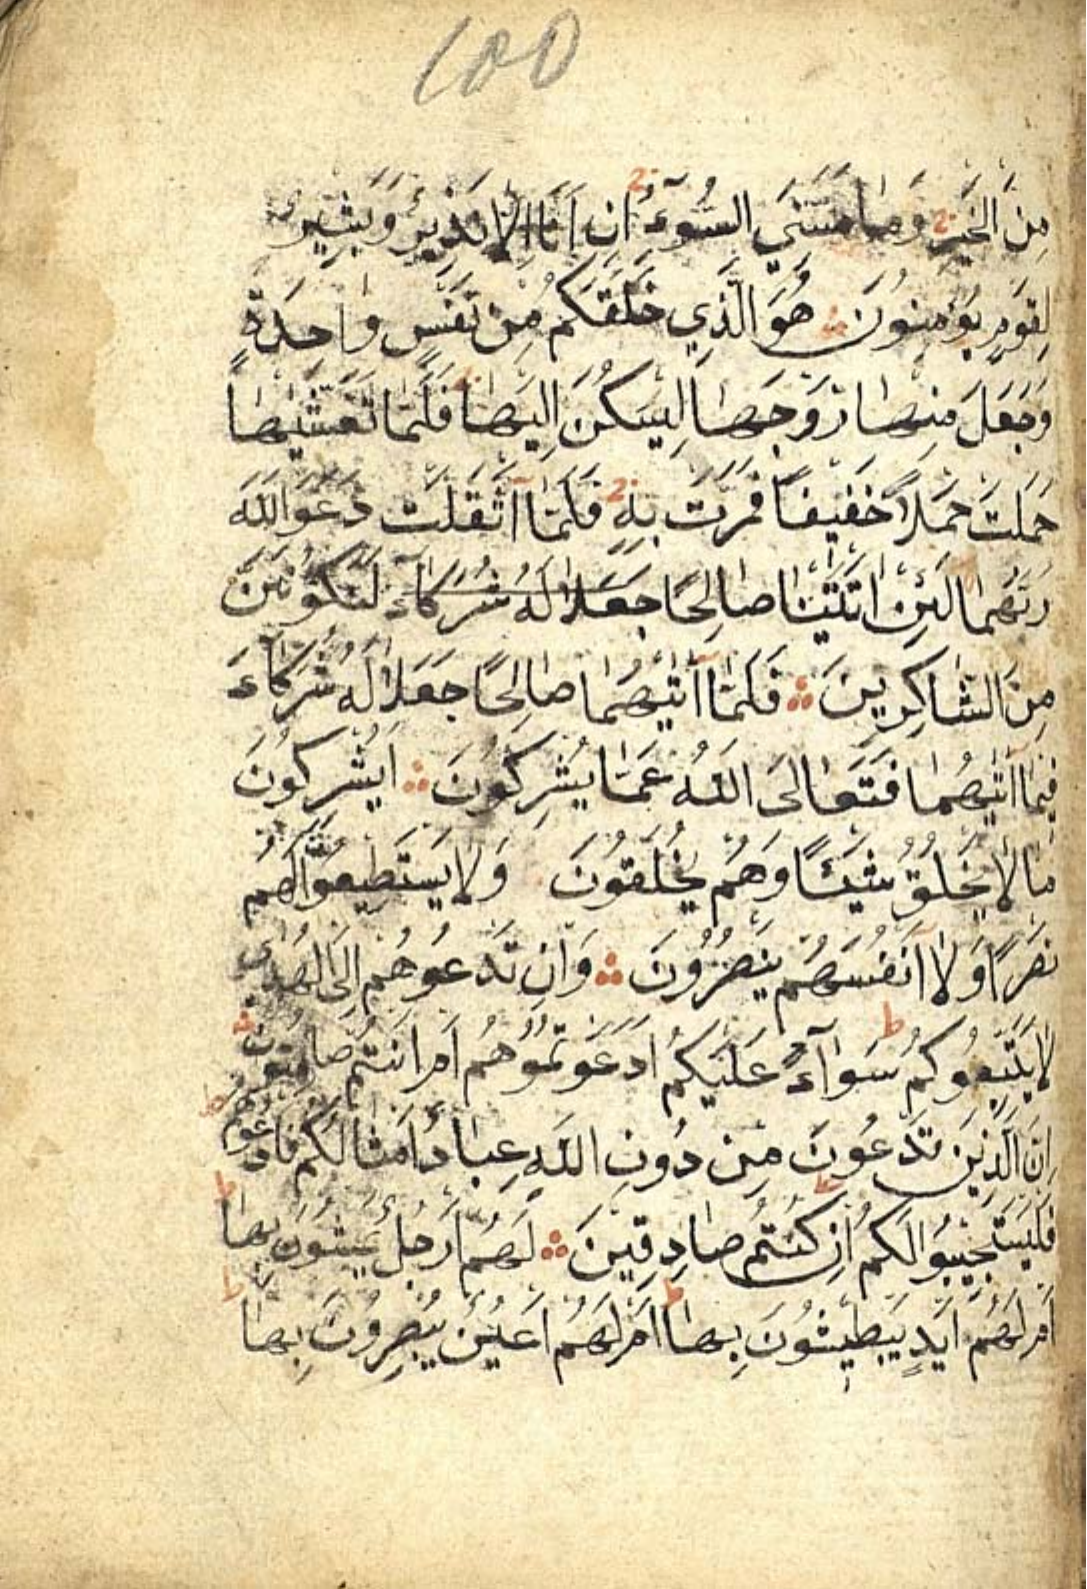 ١٥٥
مِنَ الْخَيْرِ وَمَا مَسَّنِيَ السُّوءُ اِنْ اَنَا اِلَّا نَذِيرٌ وَبَشِيرٌ
لِقَوْمٍ يُؤْمِنُونَ هُوَ الَّذِي خَلَقَكُمْ مِنْ نَفْسٍ وَاحِدَةٍ
وَجَعَلَ مِنْهَا زَوْجَهَا لِيَسْكُنَ اِلَيْهَا فَلَمَّا تَغَشّٰيهَا
حَمَلَتْ حَمْلاً خَفِيفًا فَمَرَّتْ بِهِ فَلَمَّا اَثْقَلَتْ دَعَوَا اللّٰهَ
رَبَّهُمَا لَئِنْ اٰتَيْتَنَا صَالِحًا جَعَلَا لَهُ شُرَكَاءَ لَنَكُونَنَّ
مِنَ الشَّاكِرِينَ فَلَمَّا اٰتٰيهُمَا صَالِحًا جَعَلَا لَهُ شُرَكَاءَ
فِيمَا اٰتٰيهُمَا فَتَعَالَى اللّٰهُ عَمَّا يُشْرِكُونَ اَيُشْرِكُونَ
مَا لَا يَخْلُقُ شَيْئًا وَهُمْ يُخْلَقُونَ وَلَا يَسْتَطِيعُونَ لَهُمْ
نَصْرًا وَلَا اَنْفُسَهُمْ يَنْصُرُونَ وَاِنْ تَدْعُوهُمْ اِلَى الْهُدٰى
لَا يَتَّبِعُوكُمْ ط سَوَاءٌ عَلَيْكُمْ اَدَعَوْتُمُوهُمْ اَمْ اَنْتُمْ صَامِتُونَ
اِنَّ الَّذِينَ تَدْعُونَ مِنْ دُونِ اللّٰهِ عِبَادٌ اَمْثَالُكُمْ فَادْعُوهُمْ
فَلْيَسْتَجِيبُوا لَكُمْ اِنْ كُنْتُمْ صَادِقِينَ لَهُمْ اَرْجُلٌ يَمْشُونَ بِهَا ط
اَمْ لَهُمْ اَيْدٍ يَبْطِشُونَ بِهَا ط اَمْ لَهُمْ اَعْيُنٌ يُبْصِرُونَ بِهَا ط